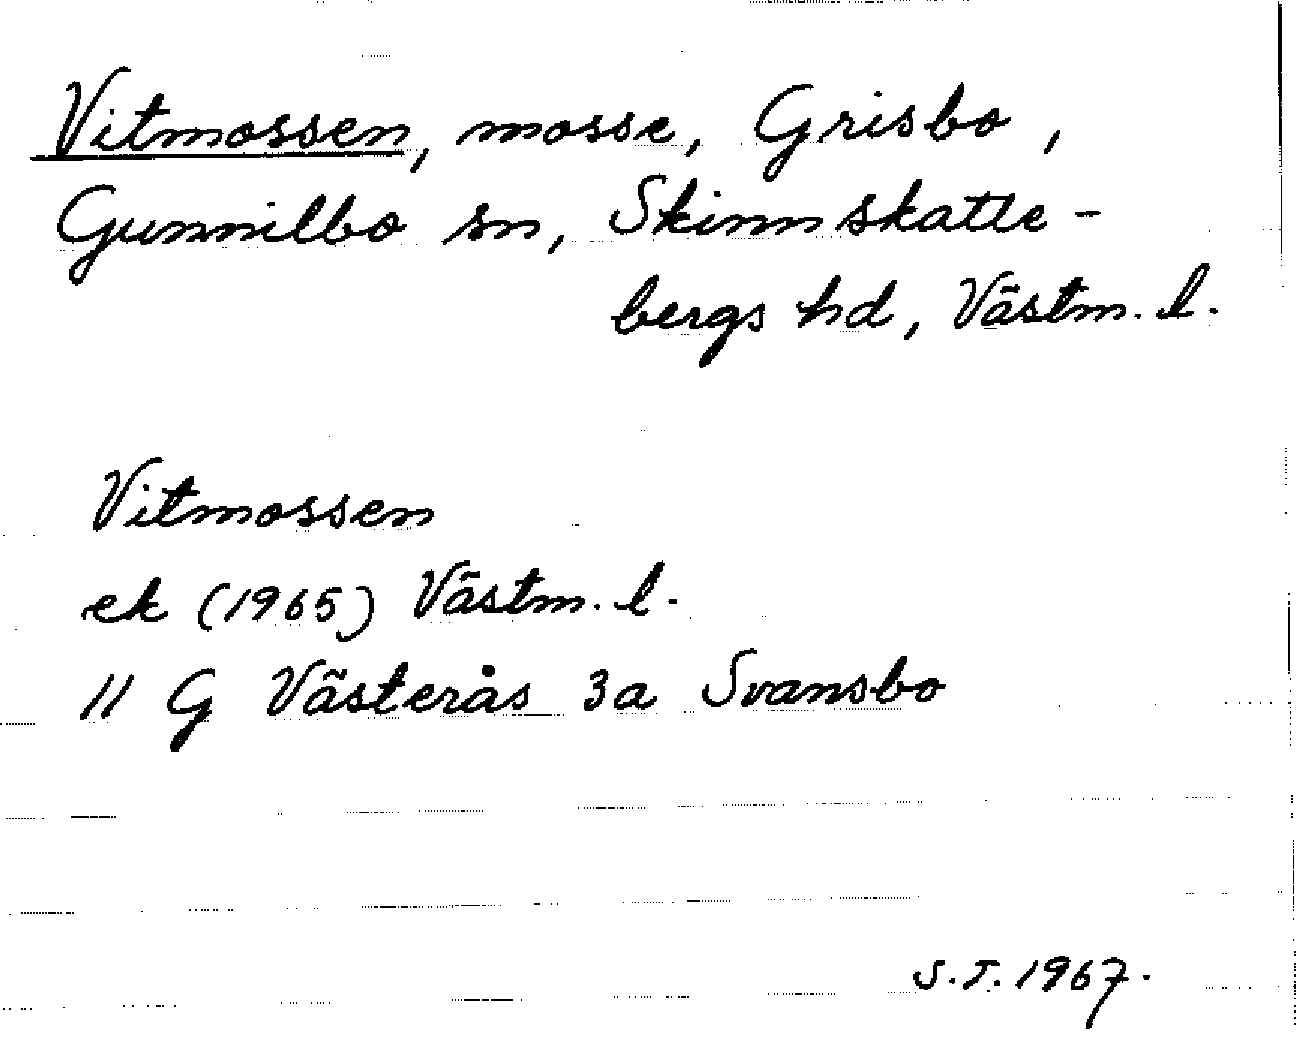 Vitmossen, mosse, Grisbo,
Gunnilbo sn, Skinnskatte-
bergs hd, Västm. l.
Vitmossen
ek (1965) Västm. l.
11 G Västerås 3a Svansbo
S.T. 1967.